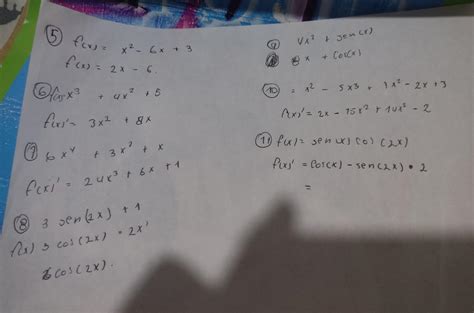 ⑤ f(x) = x² - 6x + 3
f(x) = 2x - 6.
⑥ x³ + 4x² + 5
f(x)' = 3x² + 8x
⑦ x⁴ + 3x² + x
f(x)' = 24x³ + 6x + 1
⑧ 3 sen(2x) + 1
f(x) 3 cos(2x) = 2x'
6cos(2x).
⑨ 4x² + sen(x)
x + cos(x)
⑩ = x² - 5x³ + 7x² - 2x + 3
f(x)' = 2x - 15x² + 14x² - 2
⑪ f(x) = sen(x) cos(2x)
f(x)' = cos(x) - sen(2x) • 2
=